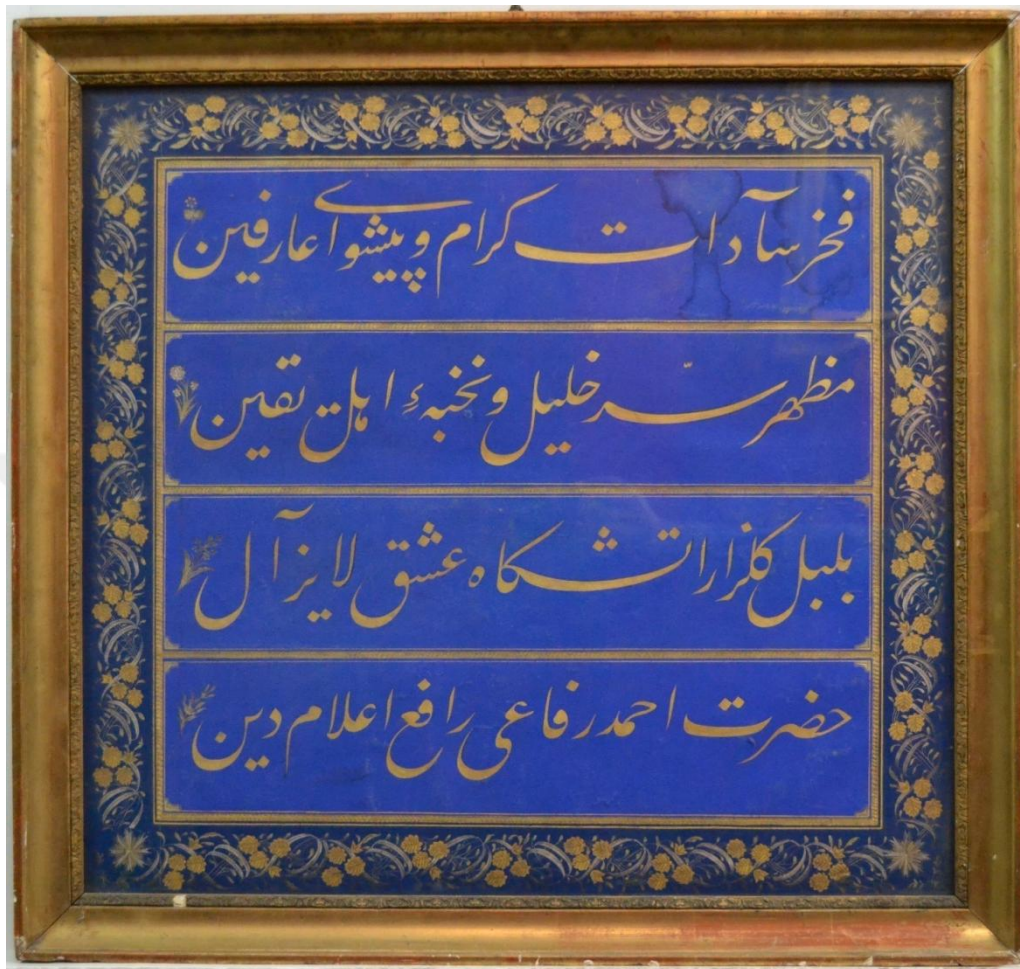 فخر سآدات كرام و پیشوای عارفین
مظهر سرّ خلیل و نخبهء اهل یقین
بلبل كلزار اتشكاه عشق لایزآل
حضرت احمد رفاعی رافع اعلام دین